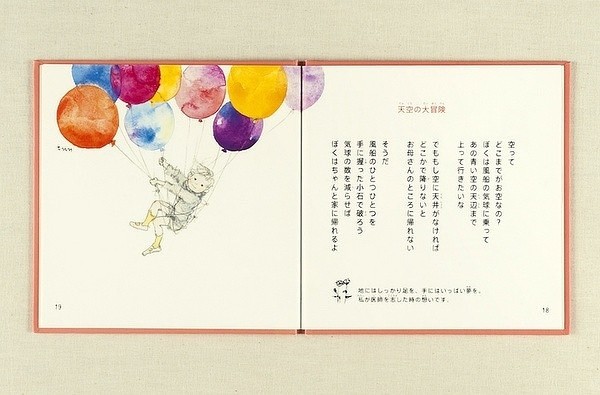 天空の大冒険
空って
どこまでがお空なの？
ぼくは風船の気球に乗って
あの青い空の天辺まで
上って行きたいな
でももし空に天井がなければ
どこかで降りないと
お母さんのところに帰れない
そうだ
風船のひとつひとつを
手に握った小石で破ろう
気球の数を減らせば
ぼくはちゃんと家に帰れるよ
地にはしっかり足を、手にはいっぱい夢を。
私が医師を志した時の想いです。
18
19